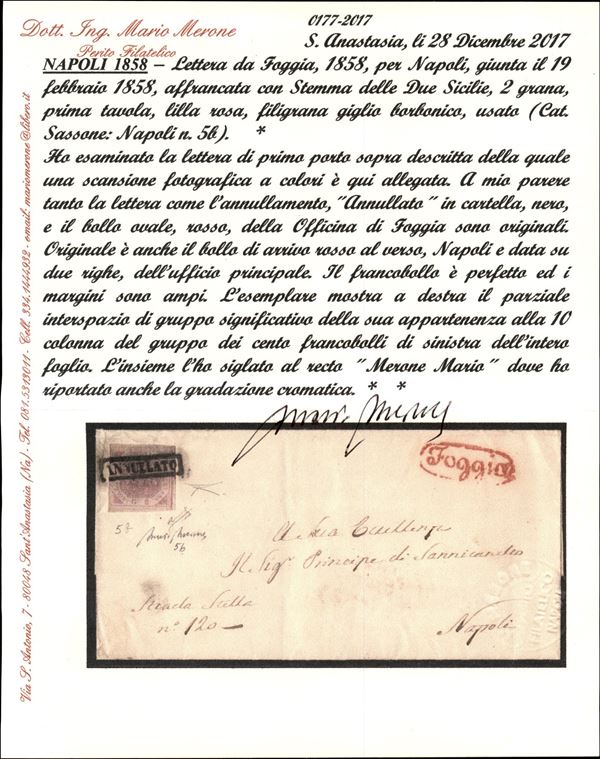 0177-2017
Dott. Ing. Mario Merone
Perito Filatelico
S. Anastasia, li 28 Dicembre 2017
NAPOLI 1858 – Lettera da Foggia, 1858, per Napoli, giunta il 19
febbraio 1858, affrancata con Stemma delle Due Sicilie, 2 grana,
prima tavola, lilla rosa, filigrana giglio borbonico, usato (Cat.
Sassone: Napoli n. 5b). *
Ho esaminato la lettera di primo porto sopra descritta della quale
una scansione fotografica a colori è qui allegata. A mio parere
tanto la lettera come l'annullamento, "Annullato" in cartella, nero,
e il bollo ovale, rosso, della Officina di Foggia sono originali.
Originale è anche il bollo di arrivo rosso al verso, Napoli e data su
due righe, dell'ufficio principale. Il francobollo è perfetto ed i
margini sono ampi. L'esemplare mostra a destra il parziale
interspazio di gruppo significativo della sua appartenenza alla 10
colonna del gruppo dei cento francobolli di sinistra dell'intero
foglio. L'insieme l'ho siglato al recto "Merone Mario" dove ho
riportato anche la gradazione cromatica. * *
Via S. Antonio, 7 - 80048 Sant'Anastasia (Na) - Tel. 081.5313011 - Cell. 334.1444932 - email: mariomerone@libero.it
ANNULLATO
Foggia
5b
A Sua Eccellenza
Il Sigr Principe di Sannicandro
Strada Stella
n° 120
Napoli